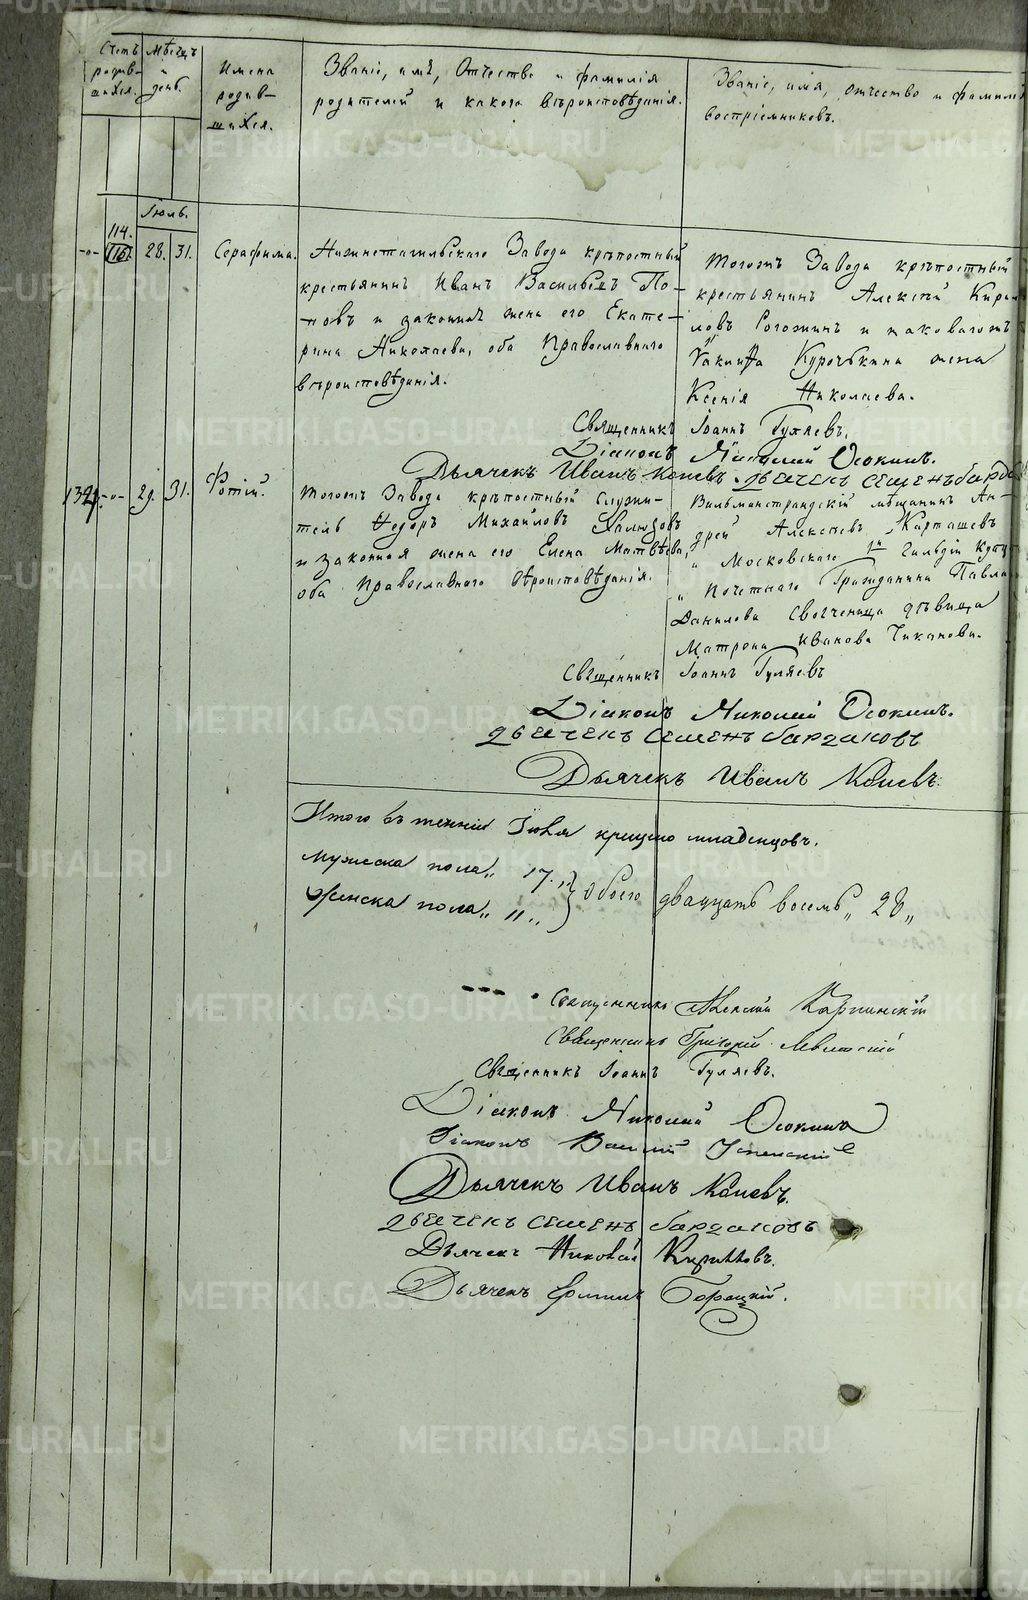 Счетъ родив-шихся.
Мѣсяцъ и день.
Имена родив-шихся.
Званіе, имя, Отчество и фамилія
родителей и какого вѣроисповѣданія.
Званіе, имя, отчество и фамилія
воспріемниковъ.
Іюль.
114.
-"- 115. 28. 31. Серафима.
Нижнетагильскаго Завода крѣпостный
крестьянинъ Иванъ Васильевъ По-
повъ и законная жена его Екате-
рина Николаева, оба Православнаго
вѣроисповѣданія.
Тогожъ Завода крѣпостный
крестьянинъ Алексѣй Кирил
ловъ Рогожинъ и таковагожъ
Іакинфа Курочкина жена
Ксенія Николаева.
Священникъ Іоаннъ Гуляевъ.
Діаконъ Николай Осокинъ.
Дьячекъ Иванъ Коневъ. дьячекъ семенъ бардаковъ
134. -"- 29. 31. Фотій.
Тогожъ Завода крѣпостный служи-
тель Федоръ Михайловъ Халюзовъ
и законная жена его Елена Матвѣева,
оба Православнаго вѣроисповѣданія.
Вильманстрандскій мѣщанинъ Ан-
дрей Алексѣевъ Карташевъ
и Московскаго 1й Гильдіи Купца
и Почетнаго Гражданина Павла
Данилова дѣвица
Матрона Иванова Чиканова.
Священникъ Іоаннъ Гуляевъ
Діаконъ Николай Осокинъ.
дьячекъ семенъ бардаковъ
Дьячекъ Иванъ Коневъ.
Итого въ теченіи Іюля крещено младенцовъ.
Мужеска пола" 17."
Женска пола" 11." } Обоего двадцать восемь" 28"
Священникъ Алексій Карпинскій
Священникъ Григорій Левитскій
Священникъ Іоаннъ Гуляевъ.
Діаконъ Николай Осокинъ
Діаконъ Василій Успенскій
Дьячекъ Иванъ Коневъ.
дьячекъ семенъ бардаковъ
Дьячекъ Николай Кирилловъ.
Дьячекъ
METRIKI.GASO-URAL.RU